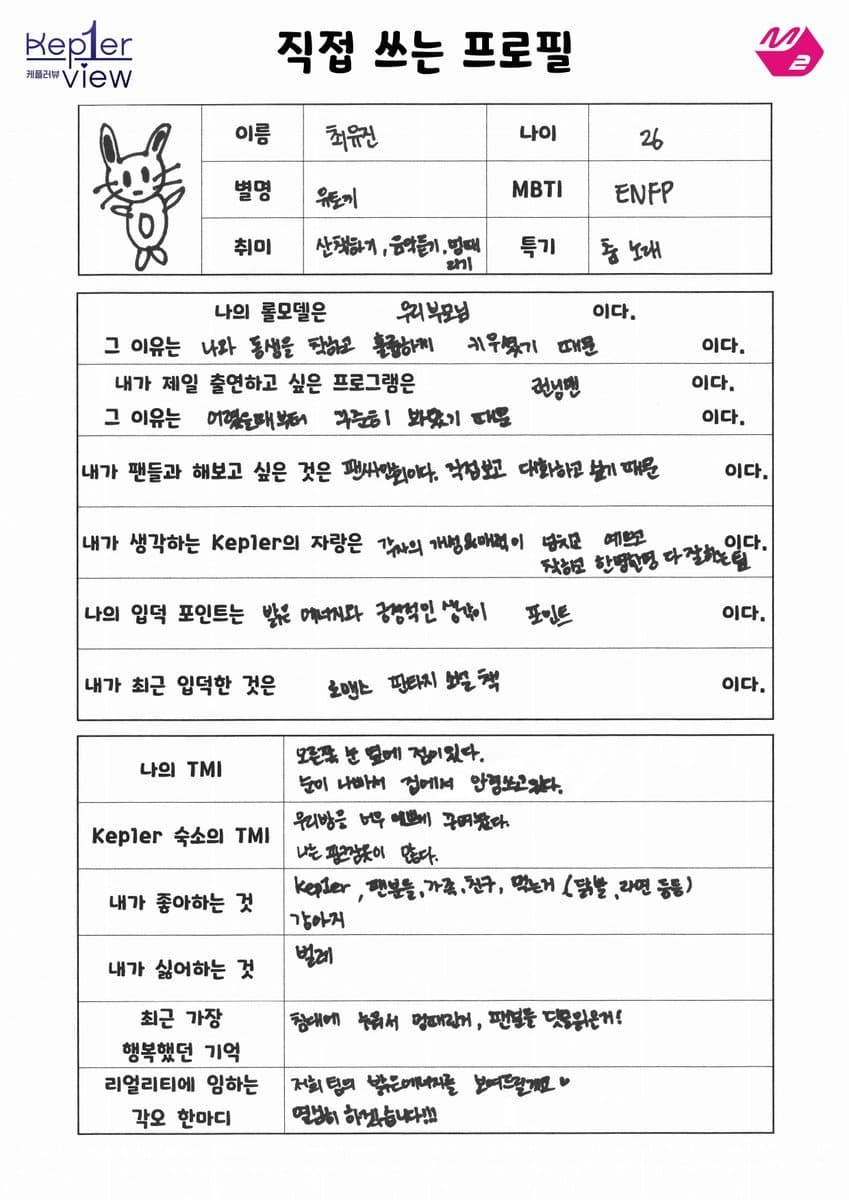 Kep1er
케플러뷰 view
직접 쓰는 프로필
M2
이름 최유진 나이 26
별명 유토끼 MBTI ENFP
취미 산책하기, 음악듣기, 멍때
리기
특기 춤 노래
나의 롤모델은 우리부모님 이다.
그 이유는 나와 동생을 착하고 훌륭하게 키우셨기 때문 이다.
내가 제일 출연하고 싶은 프로그램은 런닝맨 이다.
그 이유는 어렸을때부터 꾸준히 봐왔기 때문 이다.
내가 팬들과 해보고 싶은 것은 팬싸인회이다. 직접보고 대화하고 싶기 때문 이다.
내가 생각하는 Kep1er의 자랑은 각자의 개성&매력이 넘치고 예쁘고 이다.
착하고 한명한명 다 잘하는팀
나의 입덕 포인트는 밝은 에너지와 긍정적인 생각이 포인트 이다.
내가 최근 입덕한 것은 로맨스 판타지 소설 책 이다.
나의 TMI
오른쪽 눈 옆에 점이있다.
눈이 나빠서 집에서 안경쓰고있다.
Kep1er 숙소의 TMI
우리방을 너무 예쁘게 꾸며놨다.
나는 핑크잠옷이 많다.
내가 좋아하는 것
kep1er, 팬분들, 가족, 친구, 먹는거 (닭발, 라면 등등)
강아지
내가 싫어하는 것
벌레
최근 가장
행복했던 기억
침대에 누워서 멍때린거, 팬분들 댓글읽은거!
리얼리티에 임하는
각오 한마디
저희 팀의 밝은에너지를 보여드릴게요♥
열심히 하겠습니다!!!